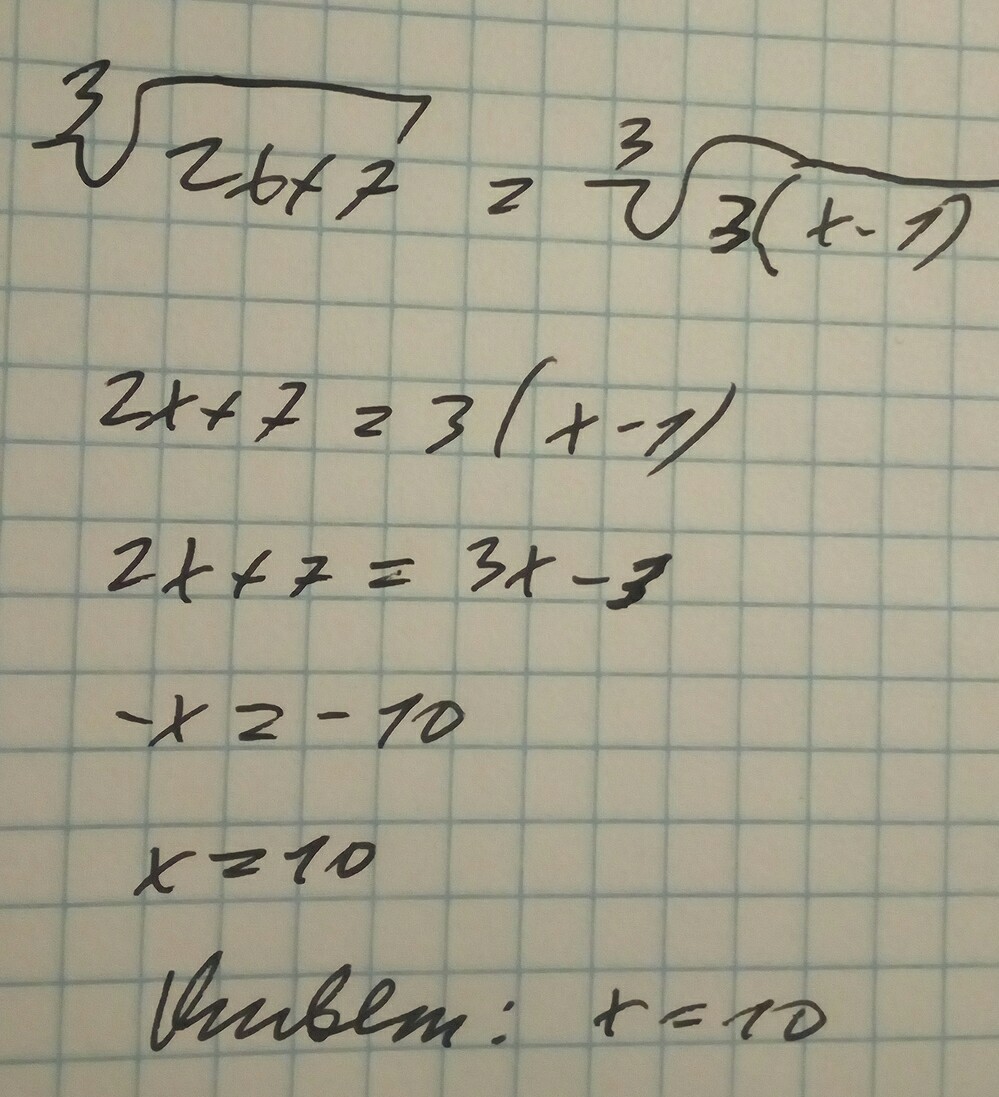 ∛(2x+7) = ∛(3(x-1))
2x+7 = 3(x-1)
2x+7 = 3x-3
-x = -10
x = 10
Ответ: x = 10